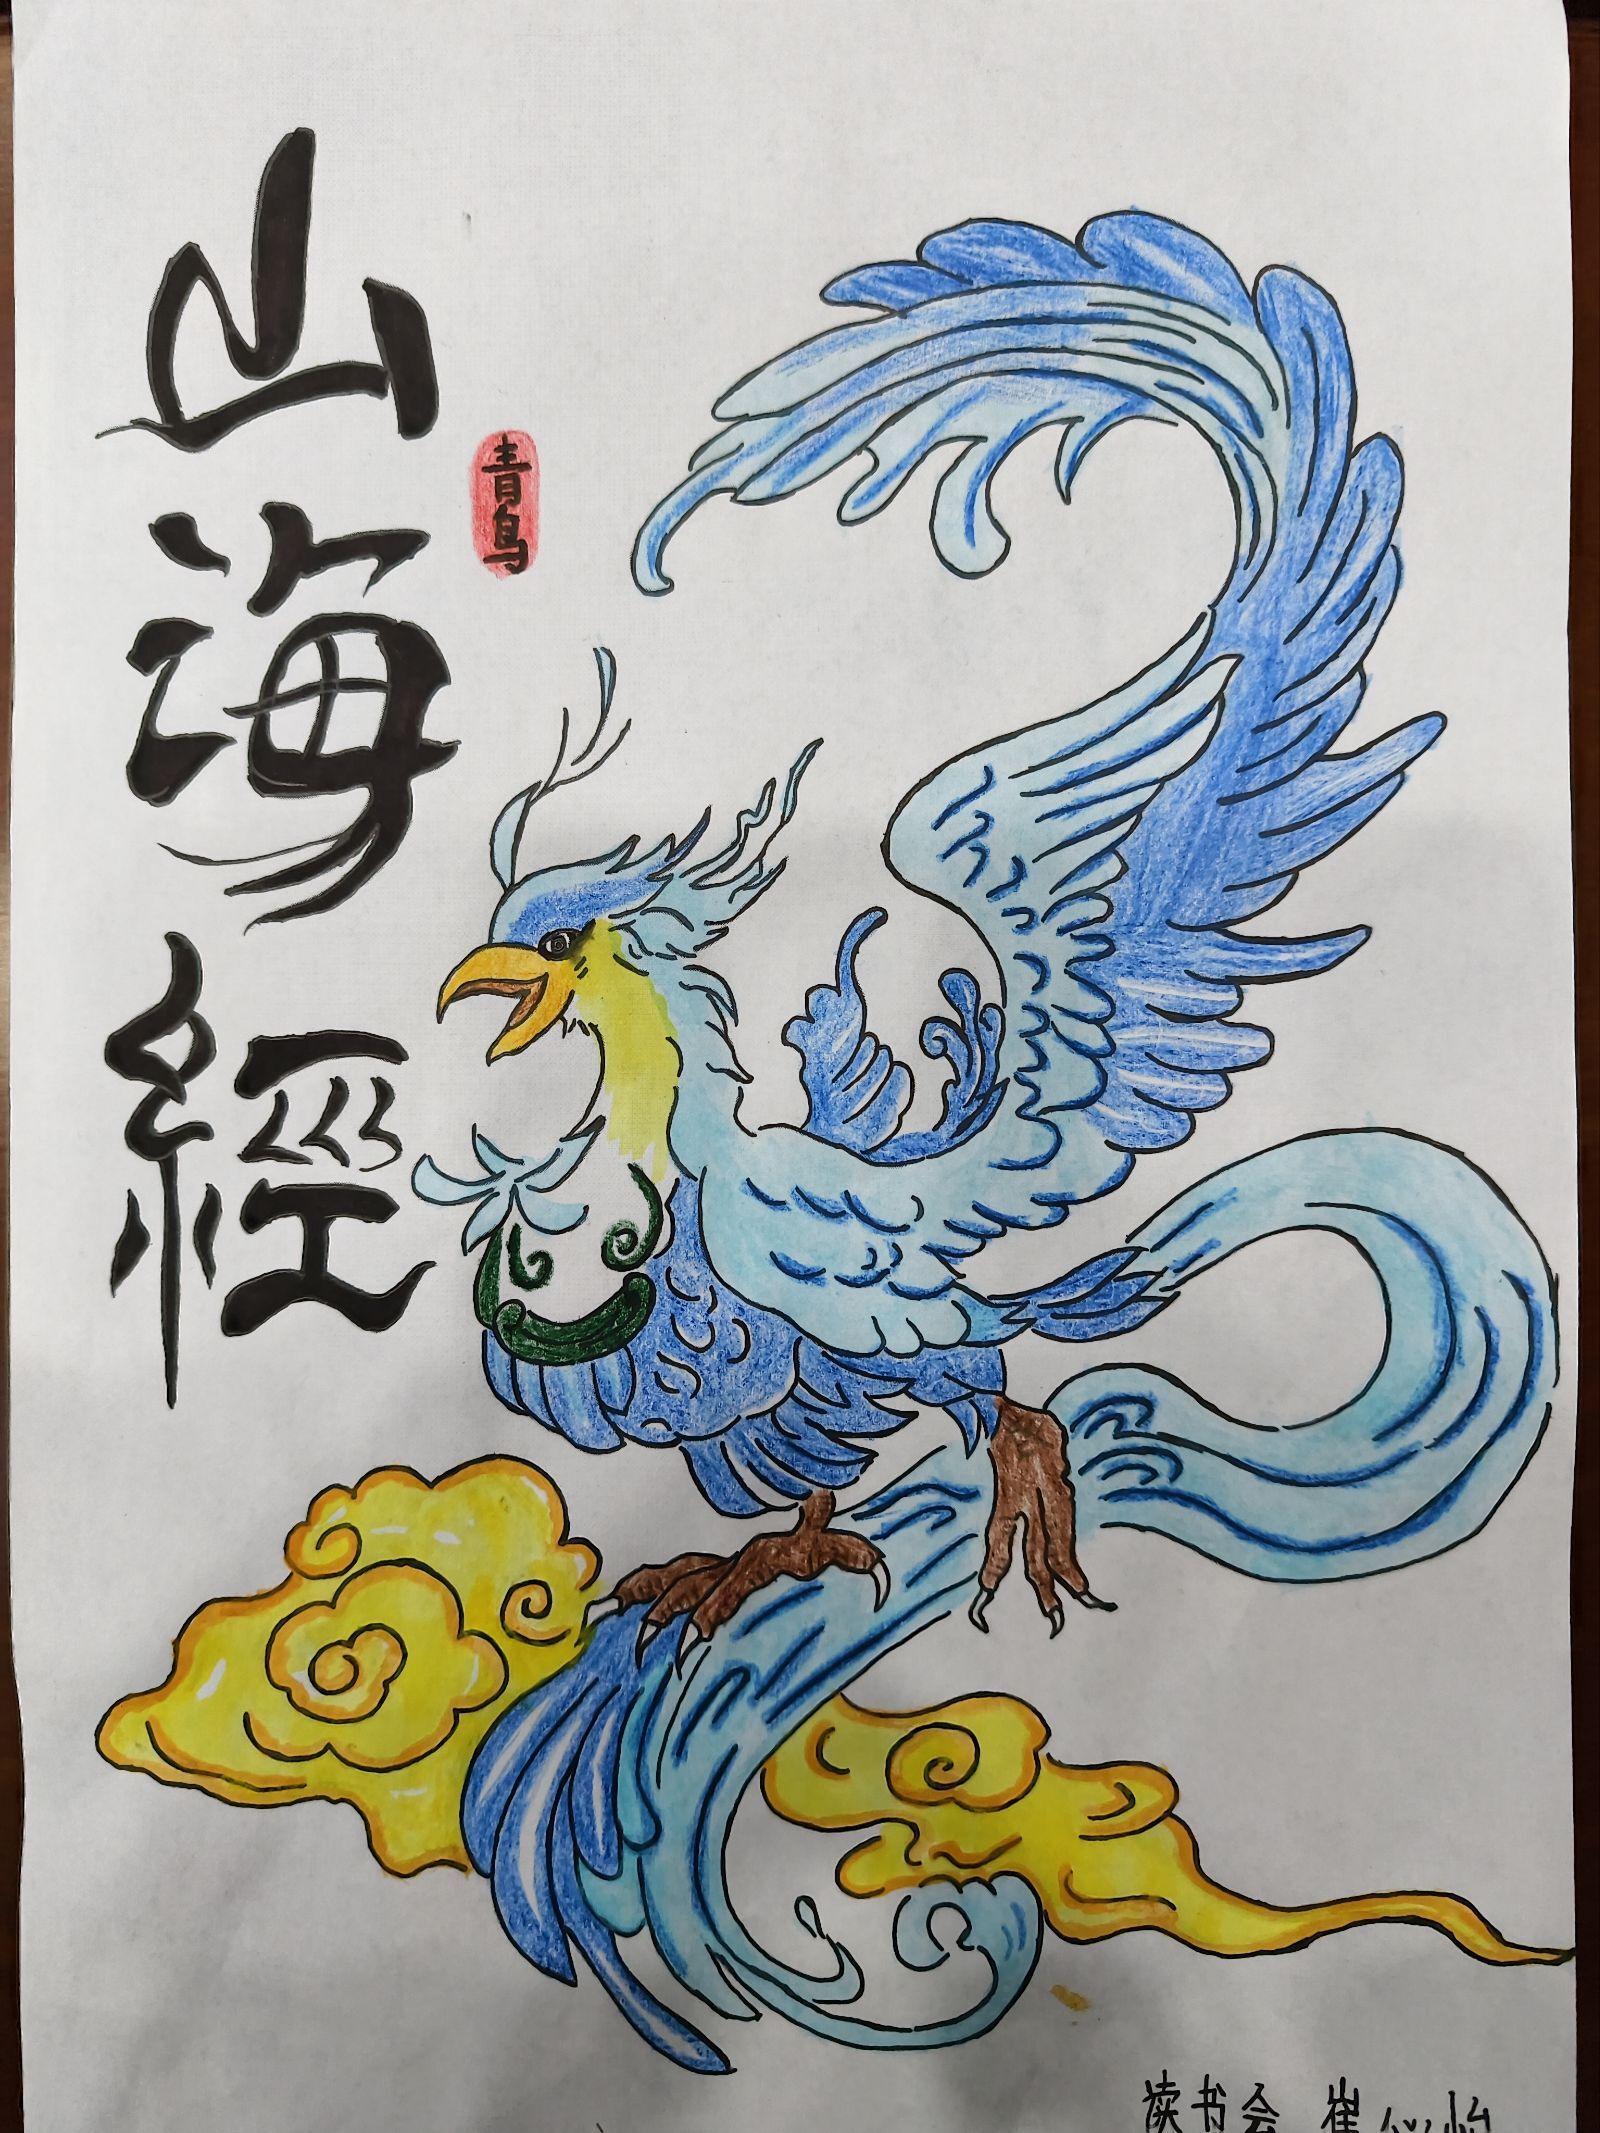 山海經
青鸟
读书会 崔